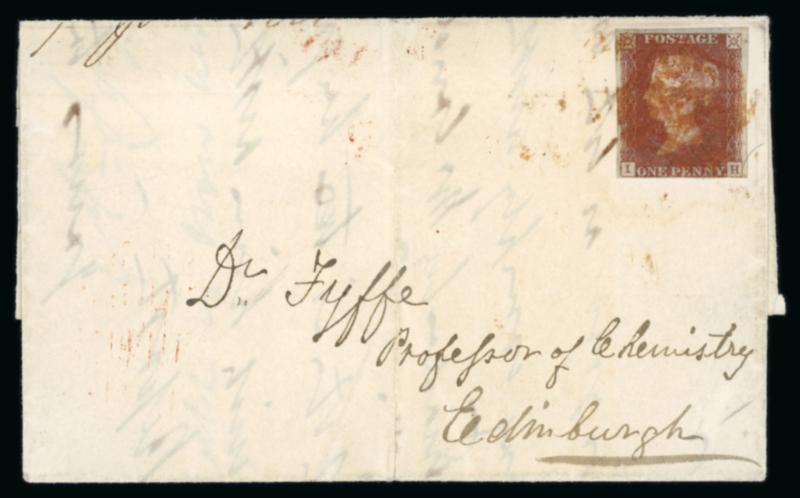 POSTAGE
I ONE PENNY H
Dr. Fyffe
Professor of Chemistry
Edinburgh